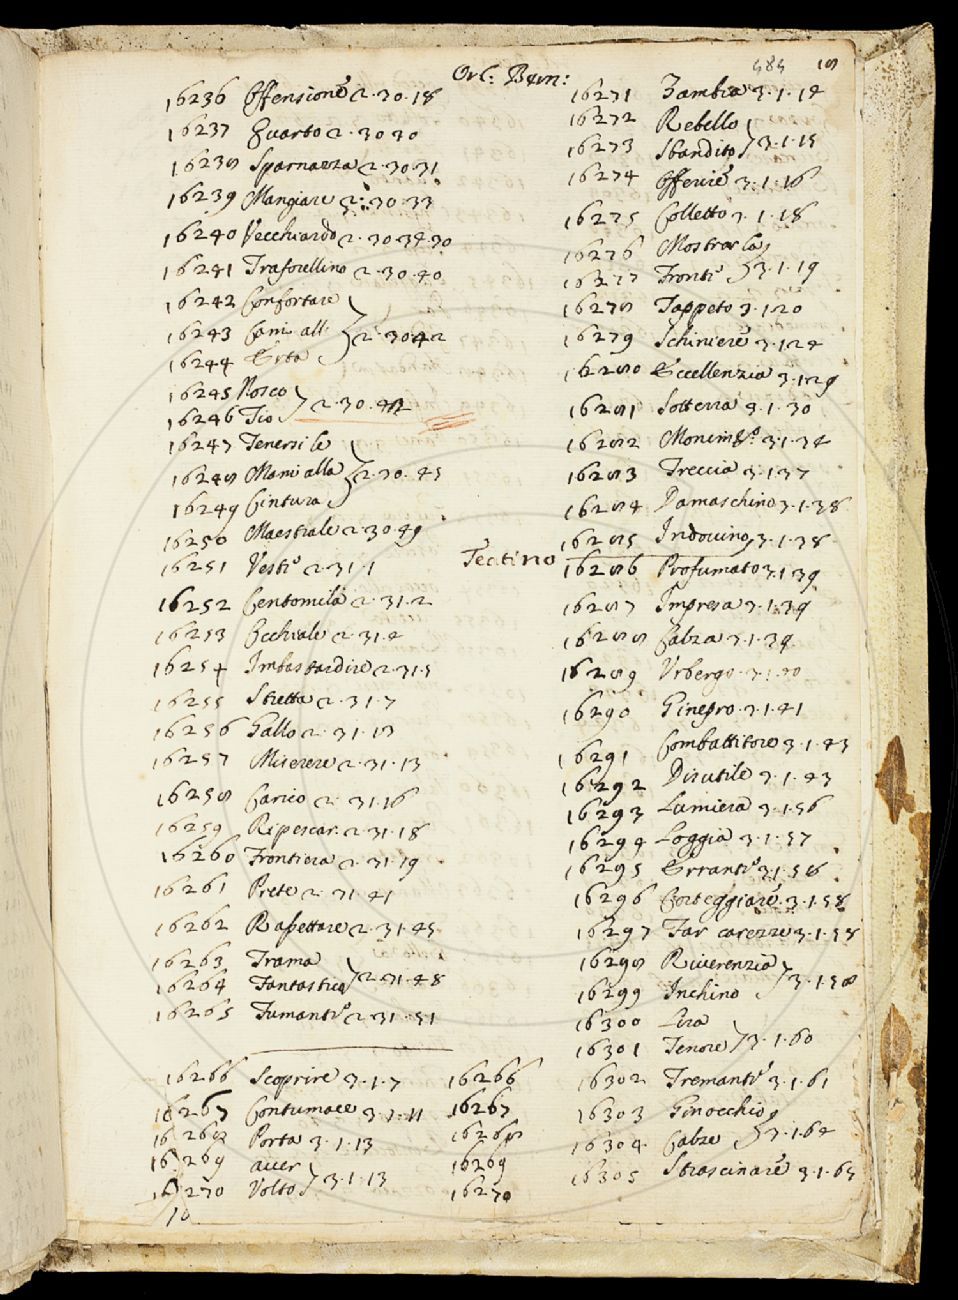 Orl: Bern: 484 18
16236 Offensione 2.30.18
16237 Guarto 2.30 30
16238 Sgarnazza 2.30.31
16239 Mangiare 2.30.33
16240 Vecchiardo 2.30 34.30
16241 Traforellino 2.30.40
16242 Confortare
16243 Cam. all. } 2.30.42
16244 Erta
16245 Rosco
16246 Tio } 2.30.42
16247 Tenersi le
16248 Mani alla } 2.30.45
16249 Cintura
16250 Maestrale 2.30 49
16251 Vesti 2.31.1
16252 Centomila 2.31.2
16253 Occhiale 2.31.4
16254 Imbastardire 2.31.5
16255 Stretta 2.31.7
16256 Gallo 2.31.13
16257 Miserere 2.31.13
16258 Carico 2.31.16
16259 Ripescar. 2.31.18
16260 Frontiera 2.31.19
16261 Prete 2.31.41
16262 Rassettare 2.31.45
16263 Trama
16264 Fantastica } 2.31.48
16265 Fumanti 2.31.51
16266 Scoprire 3.1.7 16266
16267 Contumace 3.1.11 16267
16268 Porta 3.1.13 16268
16269 auer 16269
16270 Volto } 3.1.13 16270
10
16271 Zambra 3.1.14
16272 Rebello
16273 Sbandito } 3.1.15
16274 Offerire 3.1.16
16275 Colletto 3.1.18
16276 Mostrar la
16277 Fronti } 3.1.19
16278 Tappeto 3.1.20
16279 Schiniere 3.1.24
16280 Eccellenzia 3.1.29
16281 Sotterra 3.1.30
16282 3.1.34
16283 Treccia 3.1.37
16284 Damaschino 3.1.38
16285 Indouino 3.1.38
Teatino 16286 Profumato 3.1.39
16287 Impresa 3.1.39
16288 Calza 3.1.39
16289 Vsbergo 3.1.
16290 Ginepro 3.1.41
16291 Combattitore 3.1.43
16292 Disutile 3.1.43
16293 Lumiera 3.1.56
16294 Loggia 3.1.57
16295 Erranti 3.1.58
16296 Corteggiare 3.1.58
16297 Far carezze 3.1.58
16298 Riuerenzia
16299 Inchino } 3.1.58
16300 Lira
16301 Tenore } 3.1.60
16302 Tremanti 3.1.61
16303 Ginocchio
16304 Calze } 3.1.64
16305 Strascinare 3.1.65